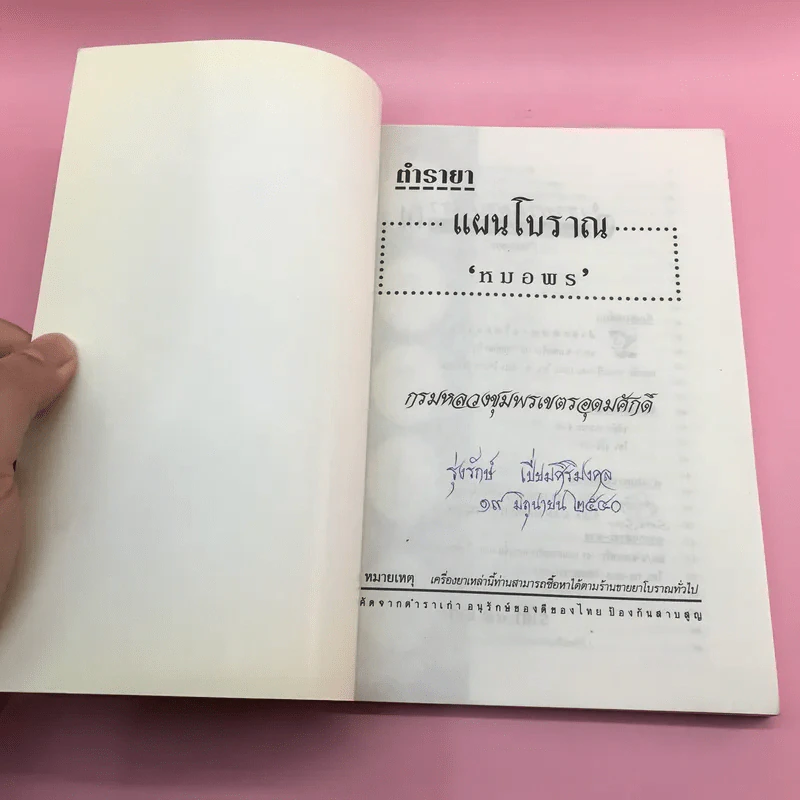 ตำรายา
แผนโบราณ
‘หมอพร’
กรมหลวงชุมพรเขตรอุดมศักดิ์
รุ่งรักษ์ เปี่ยมศิริมงคล
๑๙ มิถุนายน ๒๕๔๐
หมายเหตุ เครื่องยาเหล่านี้ท่านสามารถซื้อหาได้ตามร้านขายยาโบราณทั่วไป
คัดจากตำราเก่า อนุรักษ์ของดีของไทย ป้องกันสาบสูญ